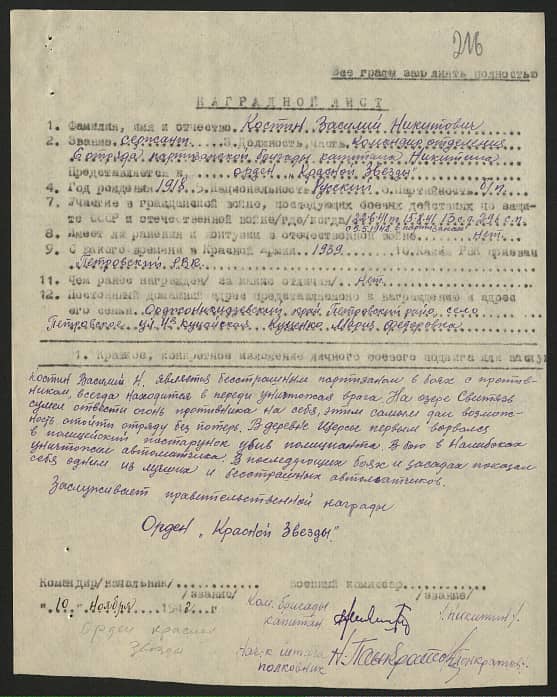 216
Все графы заполнять полностью
НАГРАДНОЙ ЛИСТ
1. Фамилия, имя и отчество Костин Василий Никитович
2. Звание сержант 3. Должность, часть командир отделения
отряда партизанской бригады капитана Никитина
Представляется к орден „Красной Звезды"
4. Год рождения 1918 5. Национальность Русский 6. Партийность б/п
7. Участие в гражданской войне, последующих боевых действиях по защи-
те СССР и отечественной войне/где/когда/
с 5.5.1942 в партизанах
8. Имеет ли ранения и контузии в отечественной войне Нет
9. С какого времени в Красной Армии 1939 10. Каким РВК призван
Петровский РВК
11. Чем ранее награжден/ за какие отличия/ Нет
12. Постоянный домашний адрес представляемого к награждению и адрес
его семьи. Орджоникидзевский край Петровский район, село
Петровское ул. Куценко Мария Федоровна
1. Краткое, конкретное изложение личного боевого подвига или заслуг
Костин Василий Н. является бесстрашным партизаном в боях с против-
никам, всегда находится в переди уничтожая врага. На озере Свитязь
сумел отвести огонь противника на себя, этим самым дал возмож-
ность отойти отряду без потерь. В деревне Щорсы первым ворвался
в полицейский постарунок убив полицианта. В бою в Налибоках
уничтожил автоматчика. В последующих боях и засадах показал
себя одним из лучших и бесстрашных автоматчиков.
Заслуживает правительственной награды
Орден „Красной Звезды".
Командир/начальник/ Военный комиссар
/звание/ /звание/
„10" Ноября 1942 г
Ком. бригады
капитан /Никитин/
Орден красной
Звезды
Нач-к штаба
полковник Н. Панкратов /Панкратов/